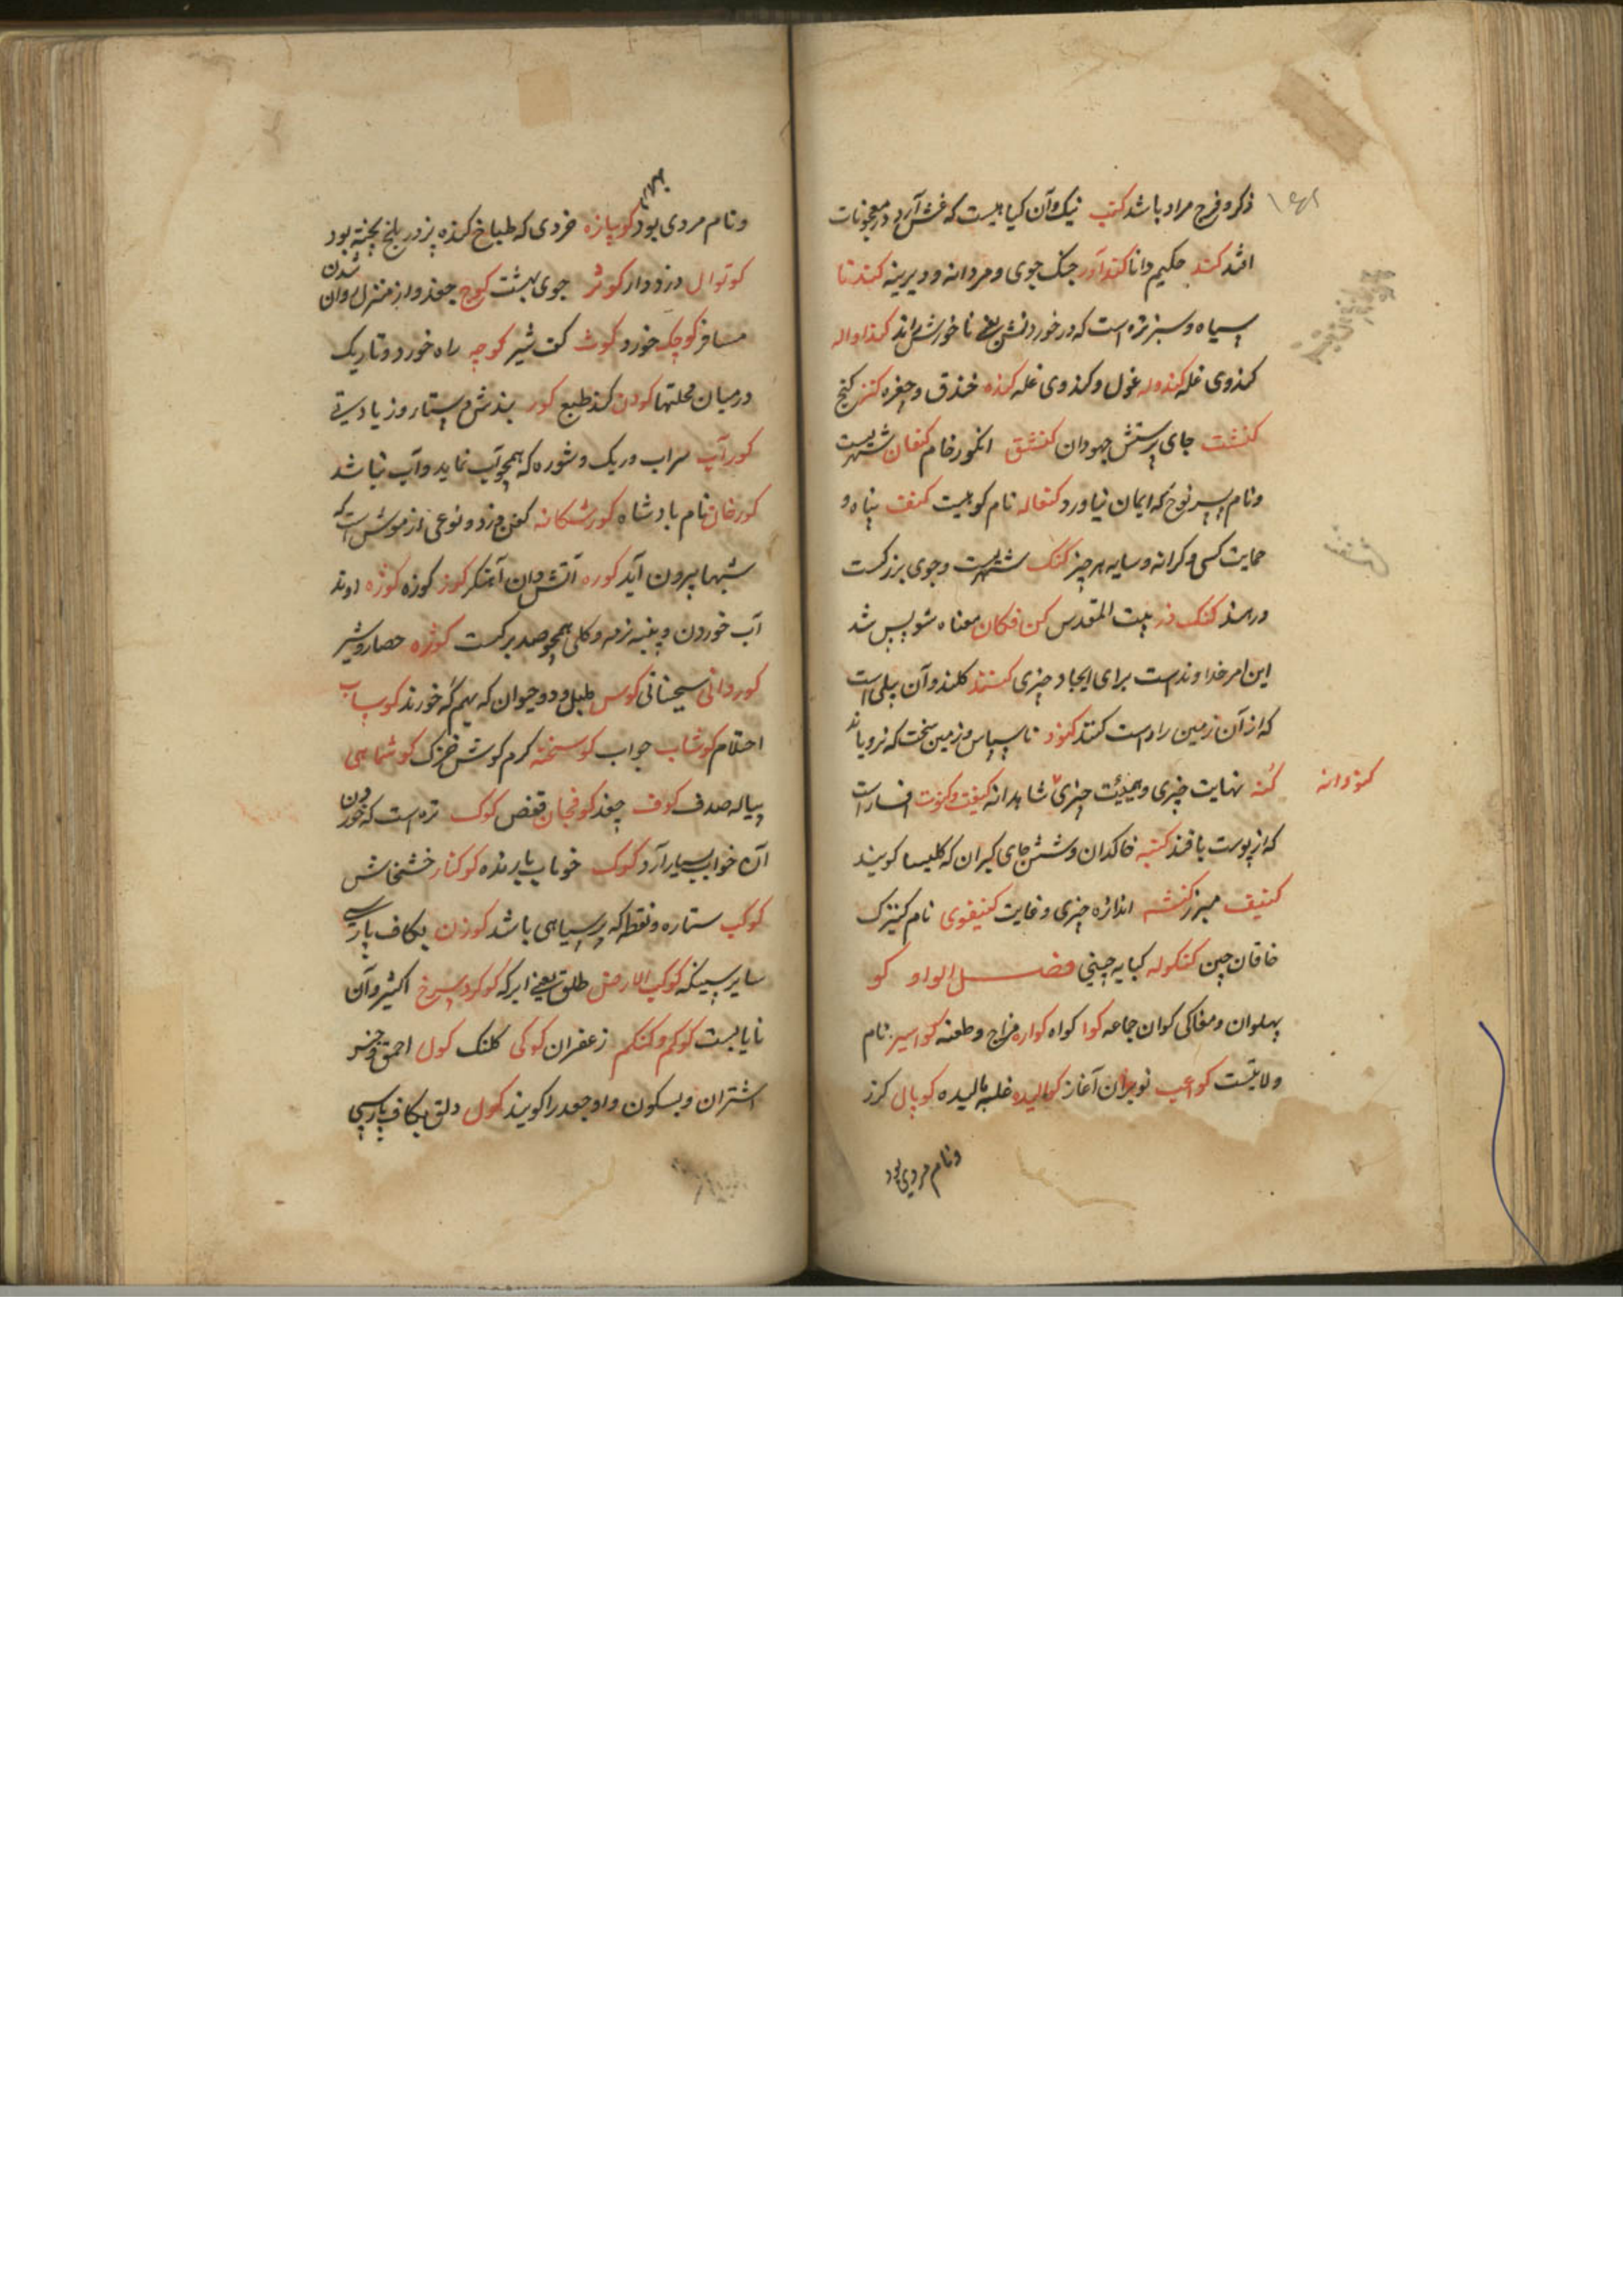 ذکر و فرج مراد باشد کنب نیک و آن کیاهیست که غش آرد و در معجونات
افتد کند حکیم و دانا کندآور جنک جوی و مردانه و دیرینه کندنا
سیاه و سبز تره است که در خوردنش نان خورش
کندوی غله کندوله غول و کندوی غله کنده خندق و حفره کنز کنج
کنشت جای پرستش جهودان کنشق انکور خام کنعان شهریست
و نام پسر نوح که ایمان نیاورد کنعاله نام کوهیست کنف پناه و
حمایت کسی و کرانه و سایه هر چیز کنک شهریست و جوی بزرکست
در هند کنک دز بیت المقدس کن فکان معناه شو پس شد
این امر خداوندست برای ایجاد چیزی کنند کلند و آن بیلی است
که از آن زمین راست کنند کنود ناسپاس و زمین سخت که نرویاند
کنودانه
کنه نهایت چیزی و هیئت چیزی شاهدانه کنیفت و کنفت افسار است
که از پوست بافند کنبه خاکدان و شش جای کبران که کلیسا کویند
کنیف مبرز کنشه اندازه چیزی و غایت کنیفوی نام کنیزک
خاقان چین کنکوله کبایه چینی فصل الواو کو
پهلوان و مغاکی کوان جماعه کوا کواه کواره مزاج و طعنه کواسیر نام
ولایتست کواعب نوبران آغاز کوالیده غلبه بالیده کوپال کرز
و نام مردی بود
و نام مردی بود کوپازه خردی که طباخ کنده پز در بلخ پخته بود
کوتوال دزودار کوثر جوی بهشت کوچ جغد و از منزل روان شدن
مسافر کوچک خورد کوث کفت شیر کوچه راه خورد و تاریک
در میان محلتها کودن کند طبع کور بندش دستار و زیادستی
کورآب سراب و ریک و شوره که همچو آب نماید و آب نباشد
کورخان نام بادشاه کورشکانه کفن دزد و نوعی از موش است که
شبها بیرون آید کوره آتش دان آهنکر کوز کوزه کوزه اوند
آب خوردن و پنبه نرمه و کلی همچو صد برکست کوژه حصار و شیر
کوردانی سجستانی کوس طبل و دو حیوان که بهم کله خورند کوساب
احتلام کوشاب جواب کوسخته کرم کوش خزک کوشماهی
پیاله صدف کوف چغد کوفجان قفص کوک تره است که خوردن
آن خواب بسیار آرد کوک خوناب بارنده کوکنار خشخاش
کوکب ستاره و نقطه که بر سیاهی باشد کوزن بکاف پارسی
سایر سپیکه کوکب الارض طلق یعنی ابرکه کوکرد سرخ اکثیر و آن
نایابست کوکم و کنکم زعفران کوکی کلنک کول احمق و خس
اشتران و بسکون واو جغد را کویند کول دلق بکاف پارسی